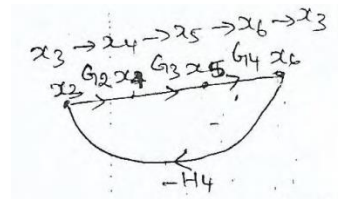 x3 → x4 → x5 → x6 → x3
x3 G2 x4 G3 x5 G4 x6
-H4